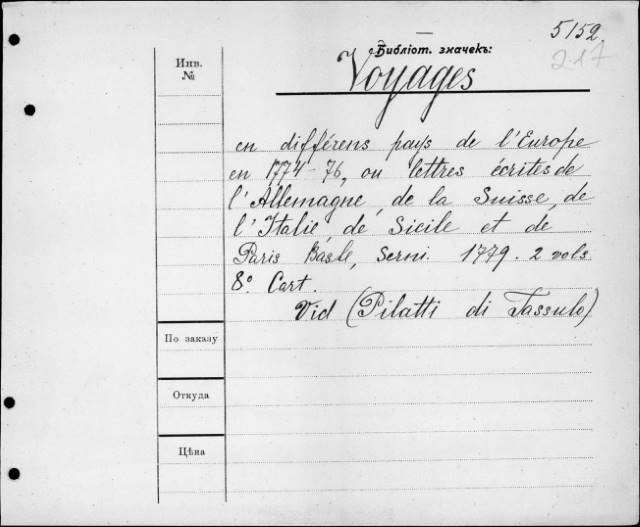 5152
217
Библiот. значекъ:
Инв.
№
Voyages
en différens pays de l'Europe
en 1774-76, ou lettres écrites de
l'Allemagne, de la Suisse, de
l'Italie, de Sicile et de
Paris Basle, Serni. 1779. 2 vols
8º Cart.
Vid (Pilatti di Tassulo)
По заказу
Откуда
Цѣна